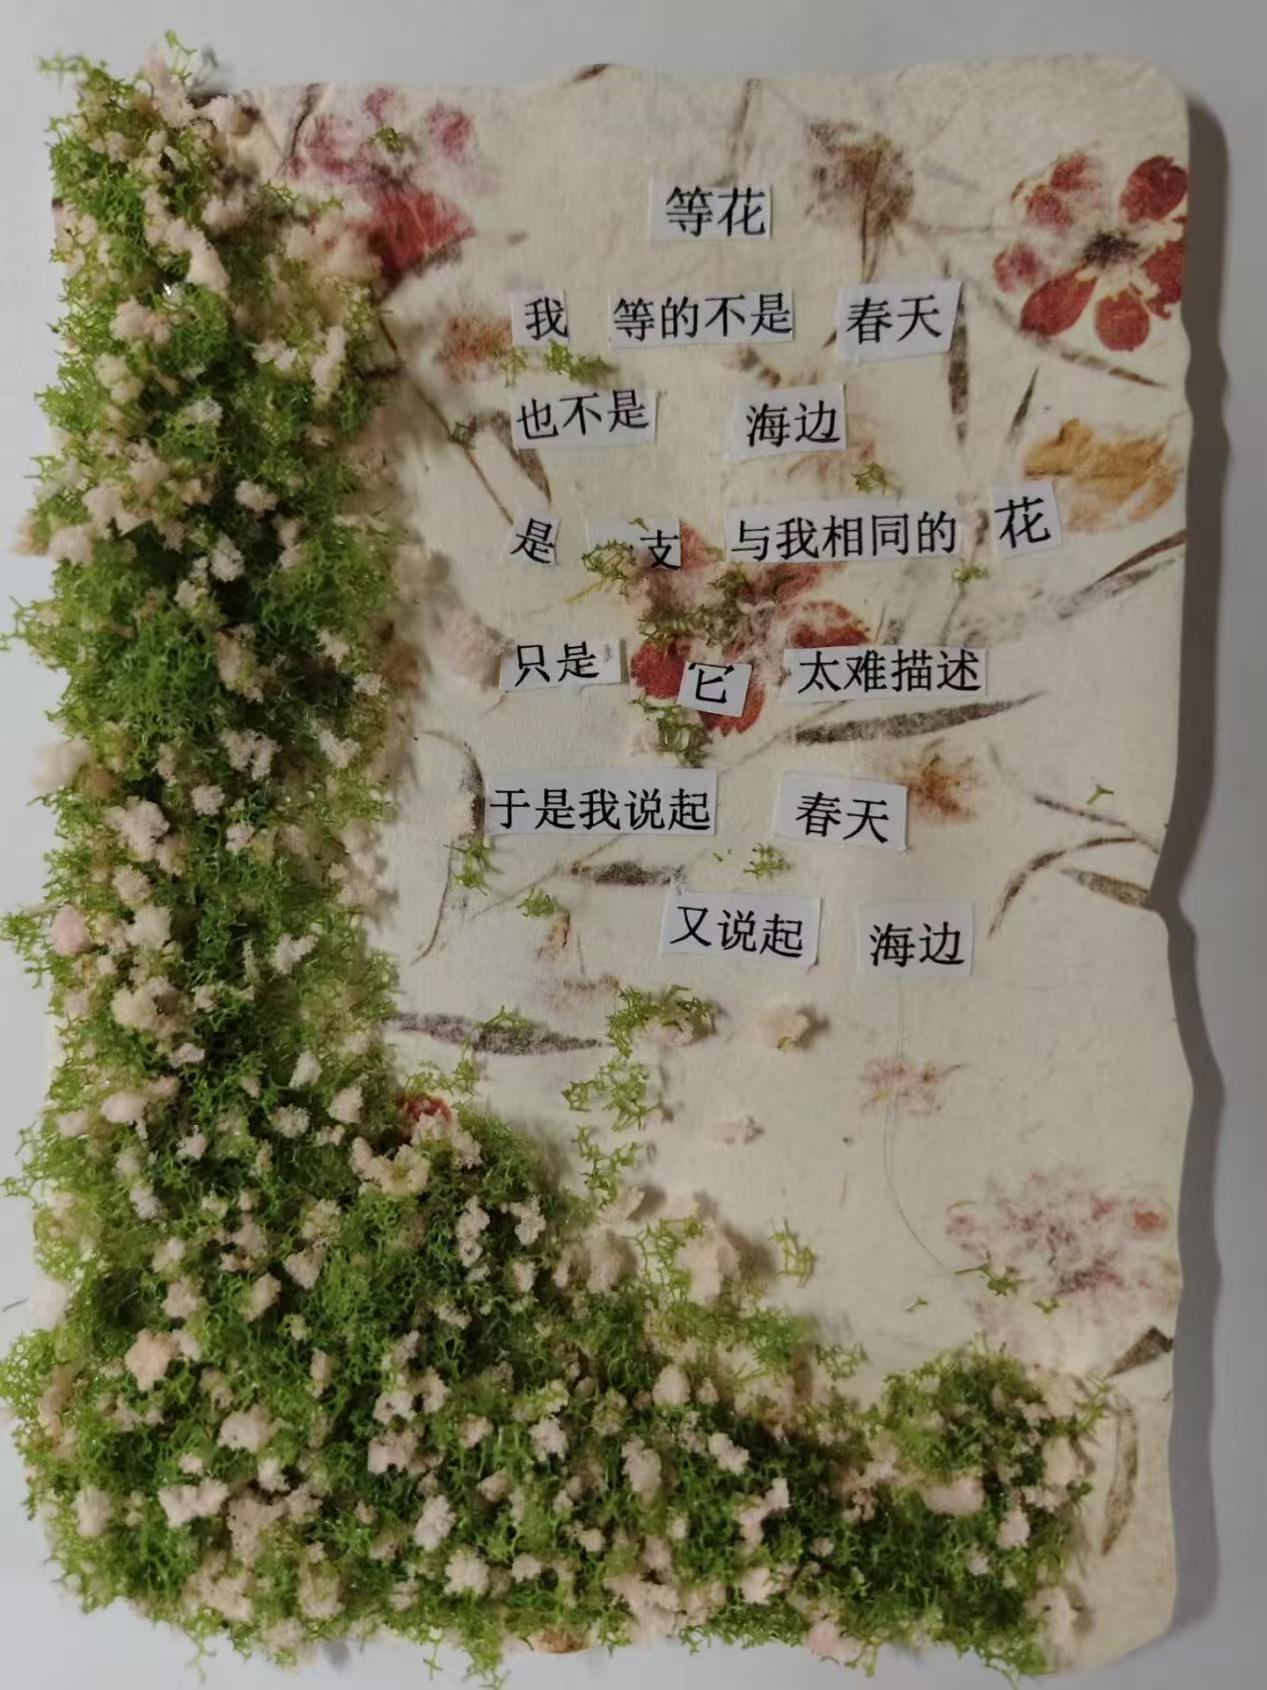 等花
我 等的不是 春天
也不是 海边
是 支 与我相同的 花
只是 它 太难描述
于是我说起 春天
又说起 海边